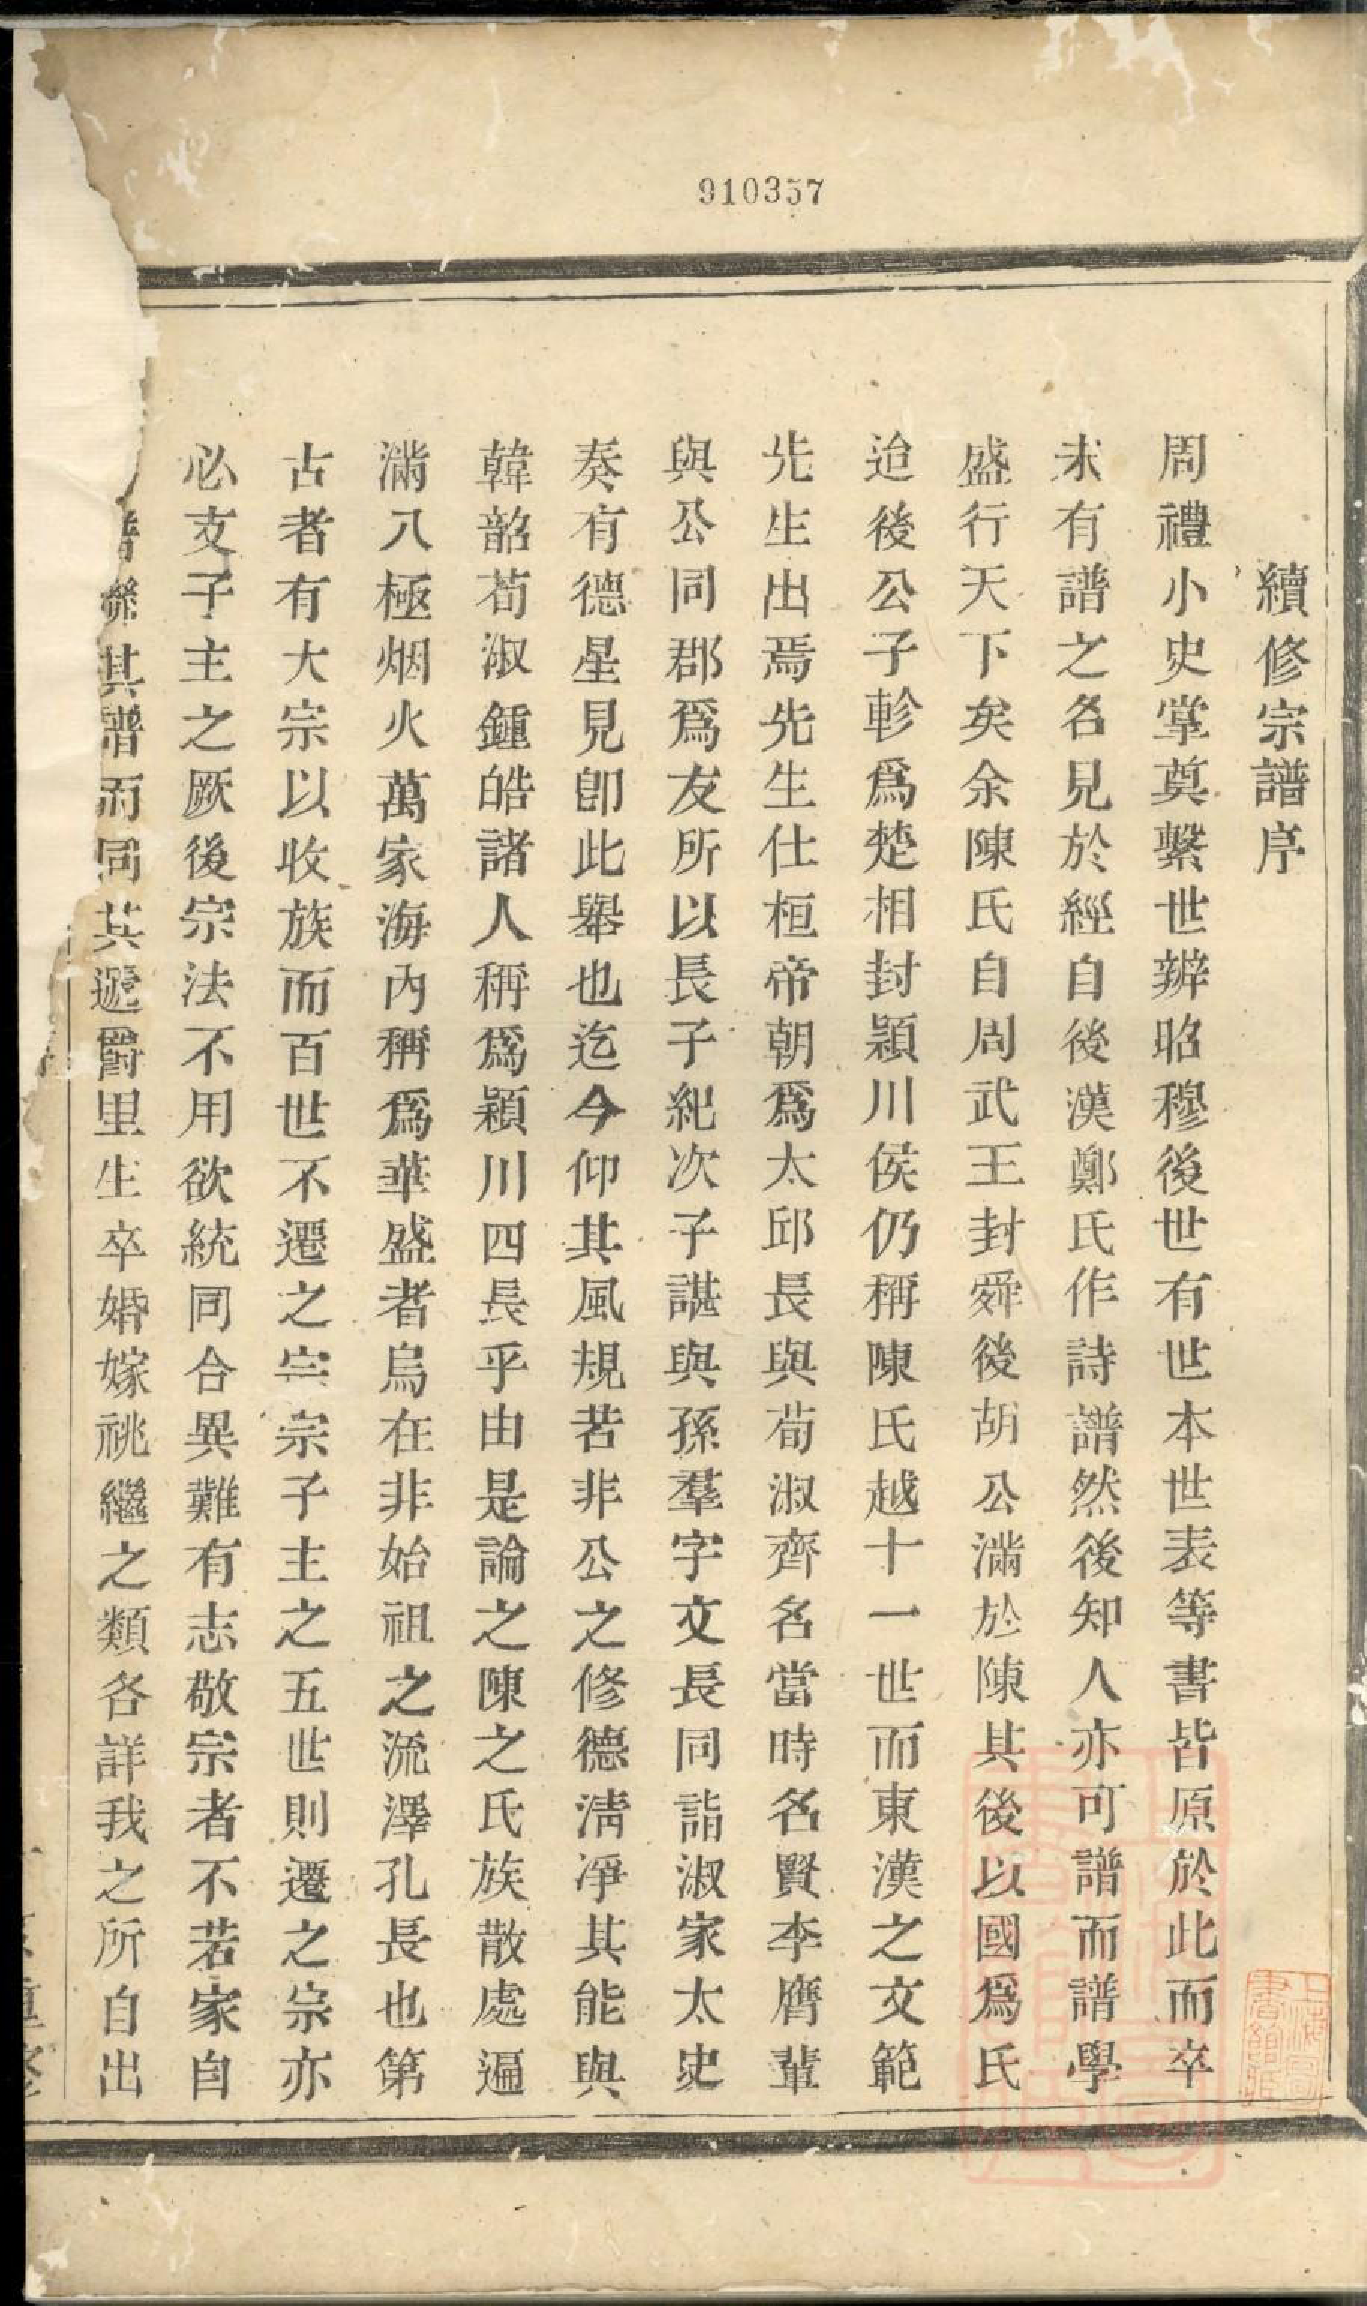 910357
續修宗譜序
周禮小史掌奠繫世辨昭穆後世有世本世表等書皆原於此而卒
未有譜之名見於經自後漢鄭氏作詩譜然後知人亦可譜而譜學
盛行天下矣余陳氏自周武王封舜後胡公滿於陳其後以國爲氏
迨後公子軫爲楚相封潁川侯仍稱陳氏越十一世而東漢之文範
先生出焉先生仕桓帝朝爲太邱長與荀淑齊名當時名賢李膺輩
與公同郡爲友所以長子紀次子諶與孫羣字文長同詣淑家太史
奏有德星見卽此舉也迄今仰其風規若非公之修德淸淨其能與
韓韶荀淑鍾皓諸人稱爲潁川四長乎由是論之陳之氏族散處遍
滿八極烟火萬家海內稱爲華盛者烏在非始祖之流澤孔長也第
古者有大宗以收族而百世不遷之宗宗子主之五世則遷之宗亦
必支子主之厥後宗法不用欲統同合異難有志敬宗者不若家自
其譜而同其遞爵里生卒婚嫁祧繼之類各詳我之所自出
上海圖書館藏